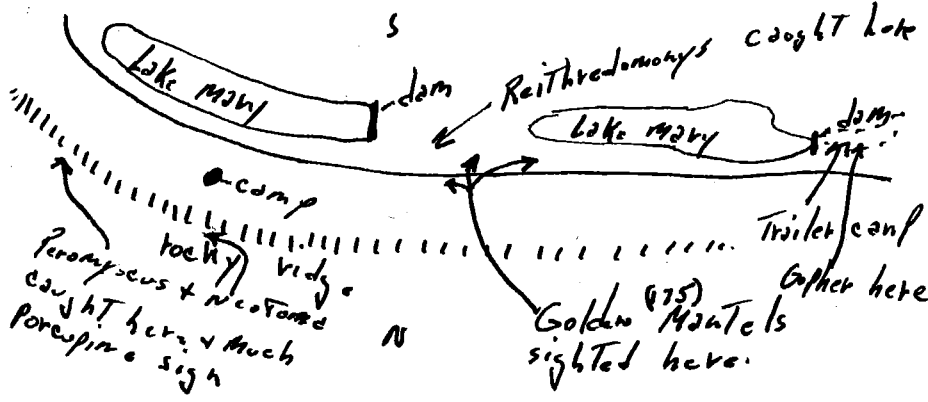 S
Reithrodomys caught here
Lake Mary
dam
Lake Mary
dam
camp
Trailer camp
Gopher here
rocky ridge
Peromyscus + Neotoma
caught here + much
porcupine sign
N
Golden (175) Mantels
sighted here.